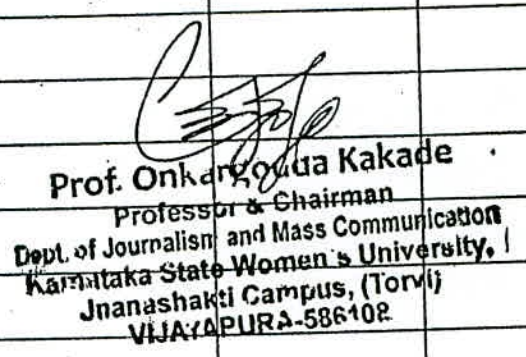 Prof. Onkargouda Kakade
Professor & Chairman
Dept. of Journalism and Mass Communication
Karnataka State Women's University,
Jnanashakti Campus, (Torvi)
VIJAYAPURA-586108